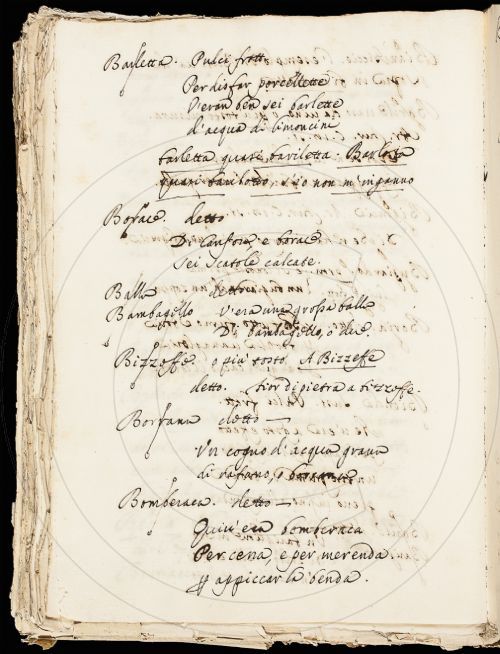 Barletta. Pulci frott.
Per disfar porcellette
V'eran ben sei barlette
d'acqua di limoncini
barletta quasi bariletta. Barlotta
quasi barilotto, s'io non m'inganno
Borace detto
Di Canfora e borace
Sei scatole calcate.
Balla detto
Bambagello V'era una grossa balla
Di bambagello, o due.
Bizzeffe. o più tosto. A Bizzeffe
detto. fior di pietra a bizzeffe.
Borrana detto
Un cogno d'acqua grana
di rafano, o borrana
Bomberaca. detto
Quivi era bomberaca
Per cena, e per merenda
appiccar la benda.